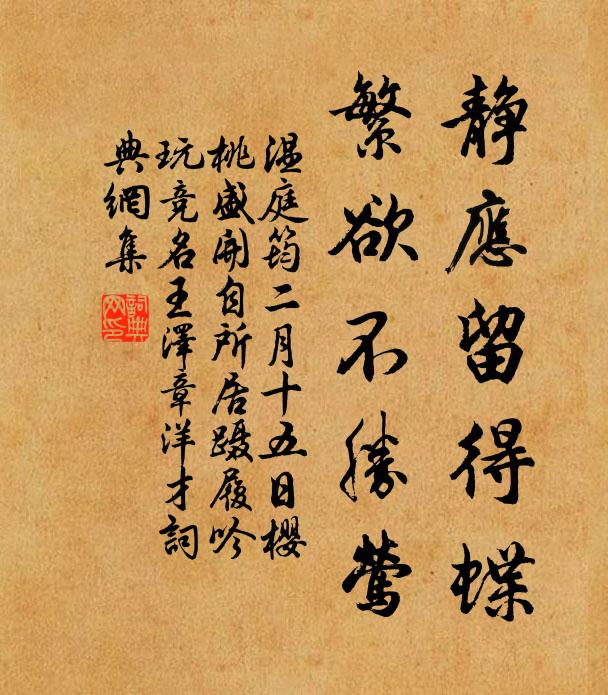 静應留得蝶
繁欲不勝鶯
温庭筠二月十五日櫻
桃盛開自所居躡履吟
玩竞名王澤章洋才詞
典網集
詞典网印